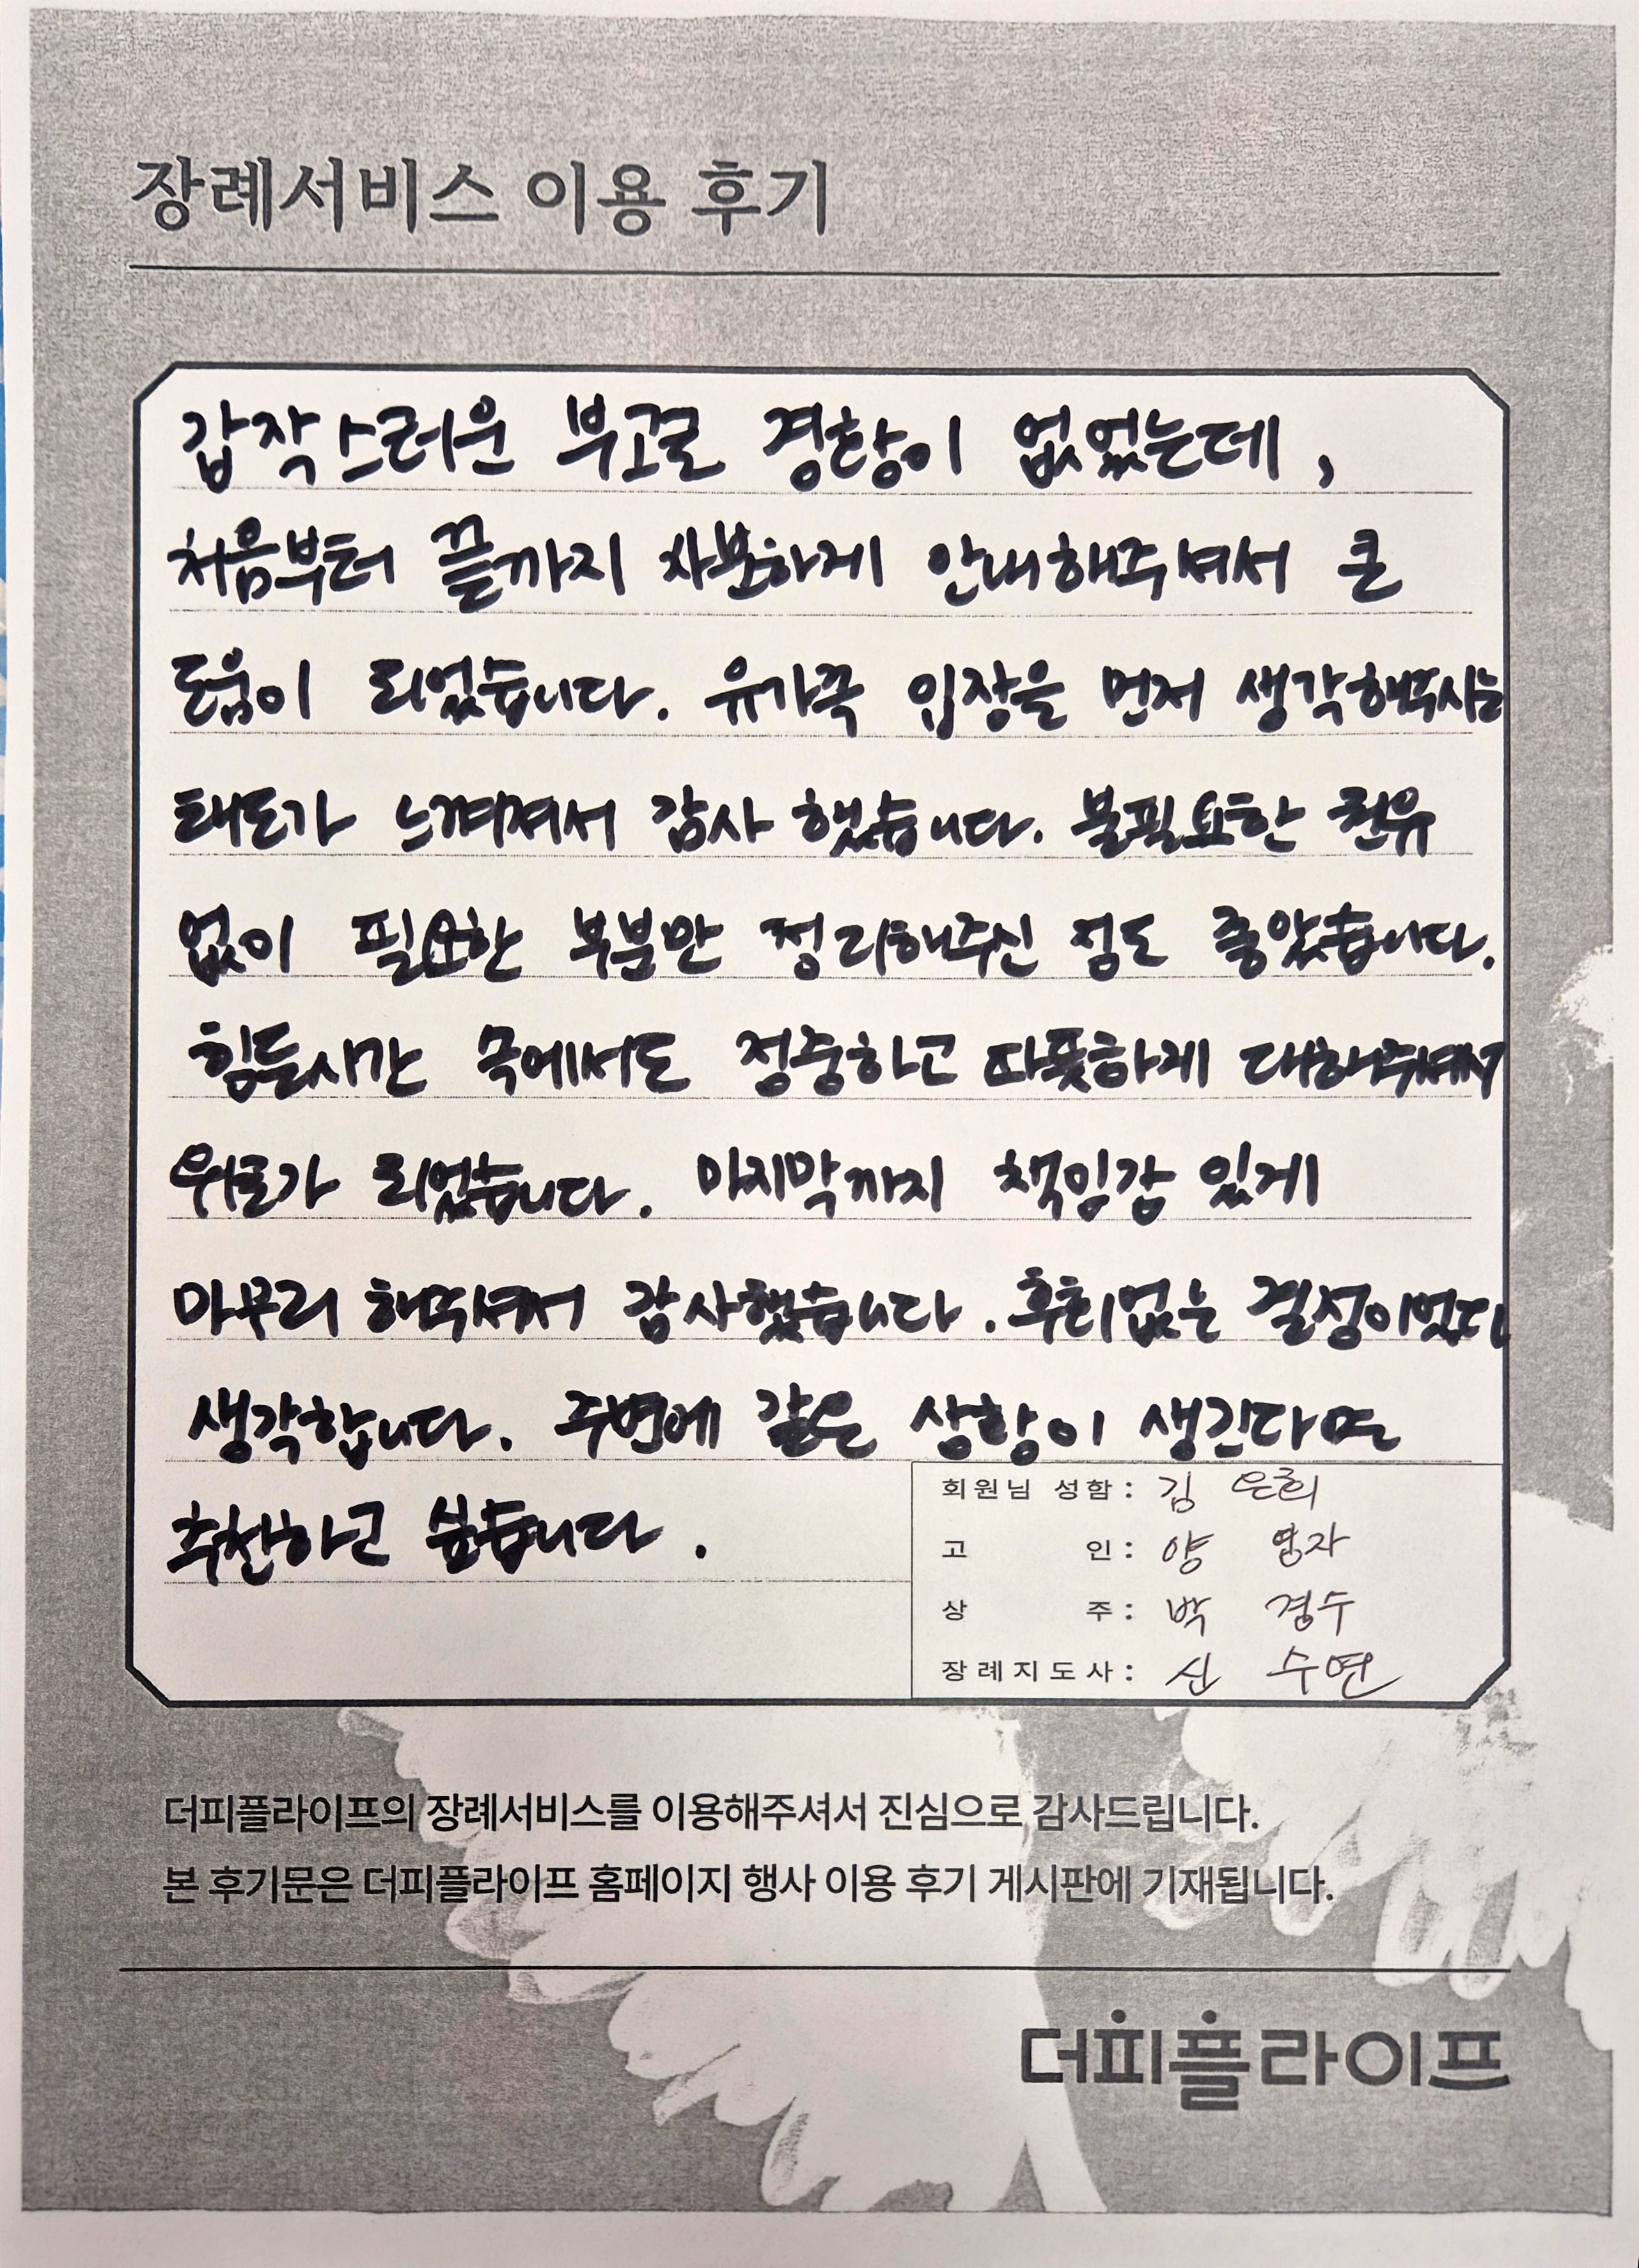 장례서비스 이용 후기
갑작스러운 부고로 경황이 없었는데,
처음부터 끝까지 차분하게 안내해주셔서 큰
도움이 되었습니다. 유가족 입장을 먼저 생각해주시는
태도가 느껴져서 감사 했습니다. 불필요한 권유
없이 필요한 부분만 정리해주신 점도 좋았습니다.
힘든시간 속에서도 정중하고 따뜻하게 대해주셔서
위로가 되었습니다. 마지막까지 책임감 있게
마무리 해주셔서 감사했습니다. 후회없는 결정이었다
생각합니다. 주변에 같은 상황이 생긴다면
추천하고 싶습니다.
회원님 성함: 김 은희
고 인: 양 영자
상 주: 박 경수
장례지도사: 신 수연
더피플라이프의 장례서비스를 이용해주셔서 진심으로 감사드립니다.
본 후기문은 더피플라이프 홈페이지 행사 이용 후기 게시판에 기재됩니다.
더피플라이프